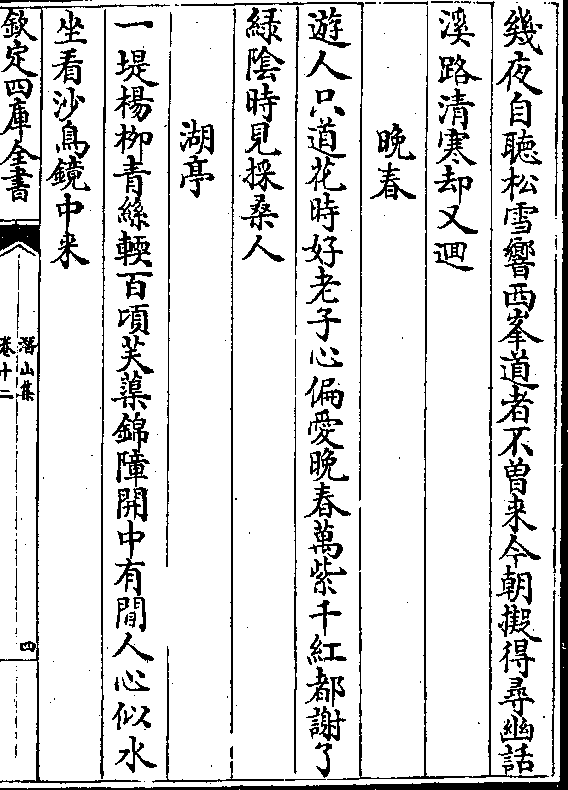 幾夜自聽松雪響西峯道者不曽来今朝擬得尋幽話
溪路清寒却又迴
晩春
遊人只道花時好老子心偏愛晚春萬紫千紅都謝了
緑隂時見採桑人
湖亭
一堤楊柳青絲輭百頃芙蕖錦障開中有閒人心似水
坐看沙鳥鏡中来
欽定四庫全書
潛山集
卷十二
四